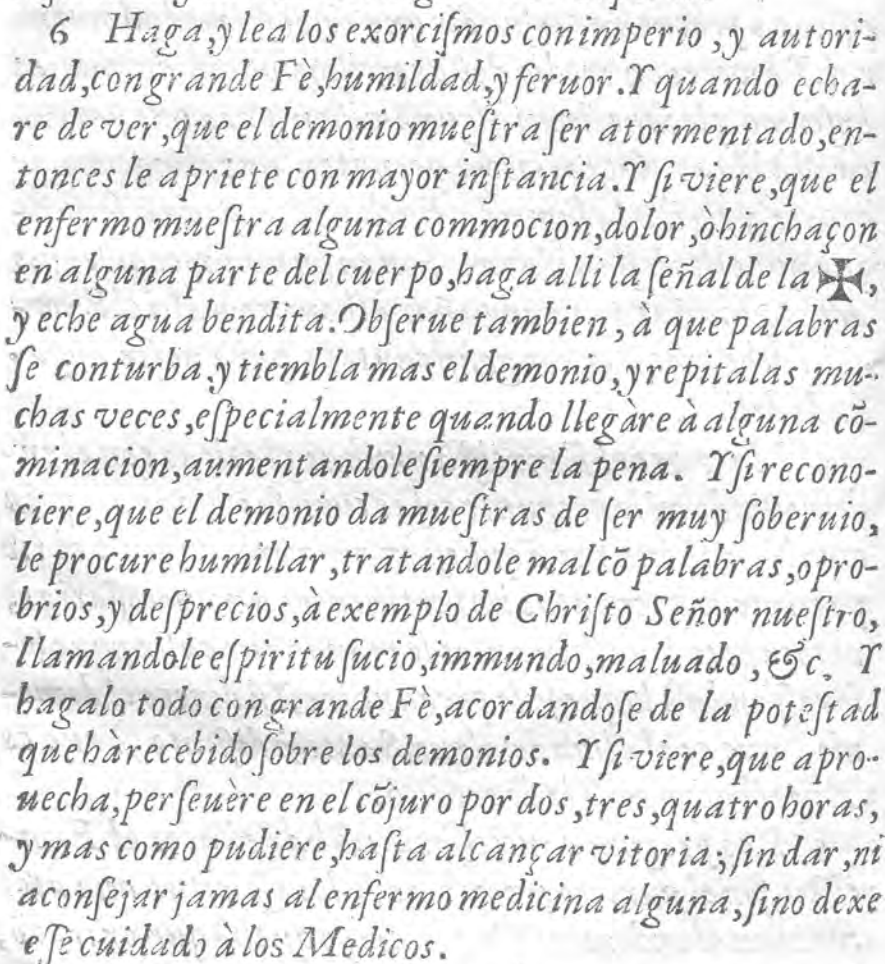 6 Haga, y lea los exorciſmos con imperio, y autori-
dad, con grande Fè, humildad, y feruor. Y quando echa-
re de ver, que el demonio mueſtra ſer atormentado, en-
tonces le apriete con mayor inſtancia. Y ſi viere, que el
enfermo mueſtra alguna commocion, dolor, ò hinchaçon
en alguna parte del cuerpo, haga alli la ſeñal de la ✠,
y eche agua bendita. Obſerue tambien, à que palabras
ſe conturba, y tiembla mas el demonio, y repitalas mu-
chas veces, eſpecialmente quando llegàre à alguna cõ-
minacion, aumentandole ſiempre la pena. Y ſi recono-
ciere, que el demonio da mueſtras de ſer muy ſoberuio,
le procure humillar, tratandole mal cõ palabras, opro-
brios, y deſprecios, à exemplo de Chriſto Señor nueſtro,
llamandole eſpiritu ſucio, immundo, maluado, &c. Y
hagalo todo con grande Fè, acordandoſe de la poteſtad
que hà recebido ſobre los demonios. Y ſi viere, que apro-
uecha, perſeuère en el cõjuro por dos, tres, quatro horas,
y mas como pudiere, haſta alcançar vitoria; ſin dar, ni
aconſejar jamas al enfermo medicina alguna, ſino dexe
eſſe cuidado à los Medicos.